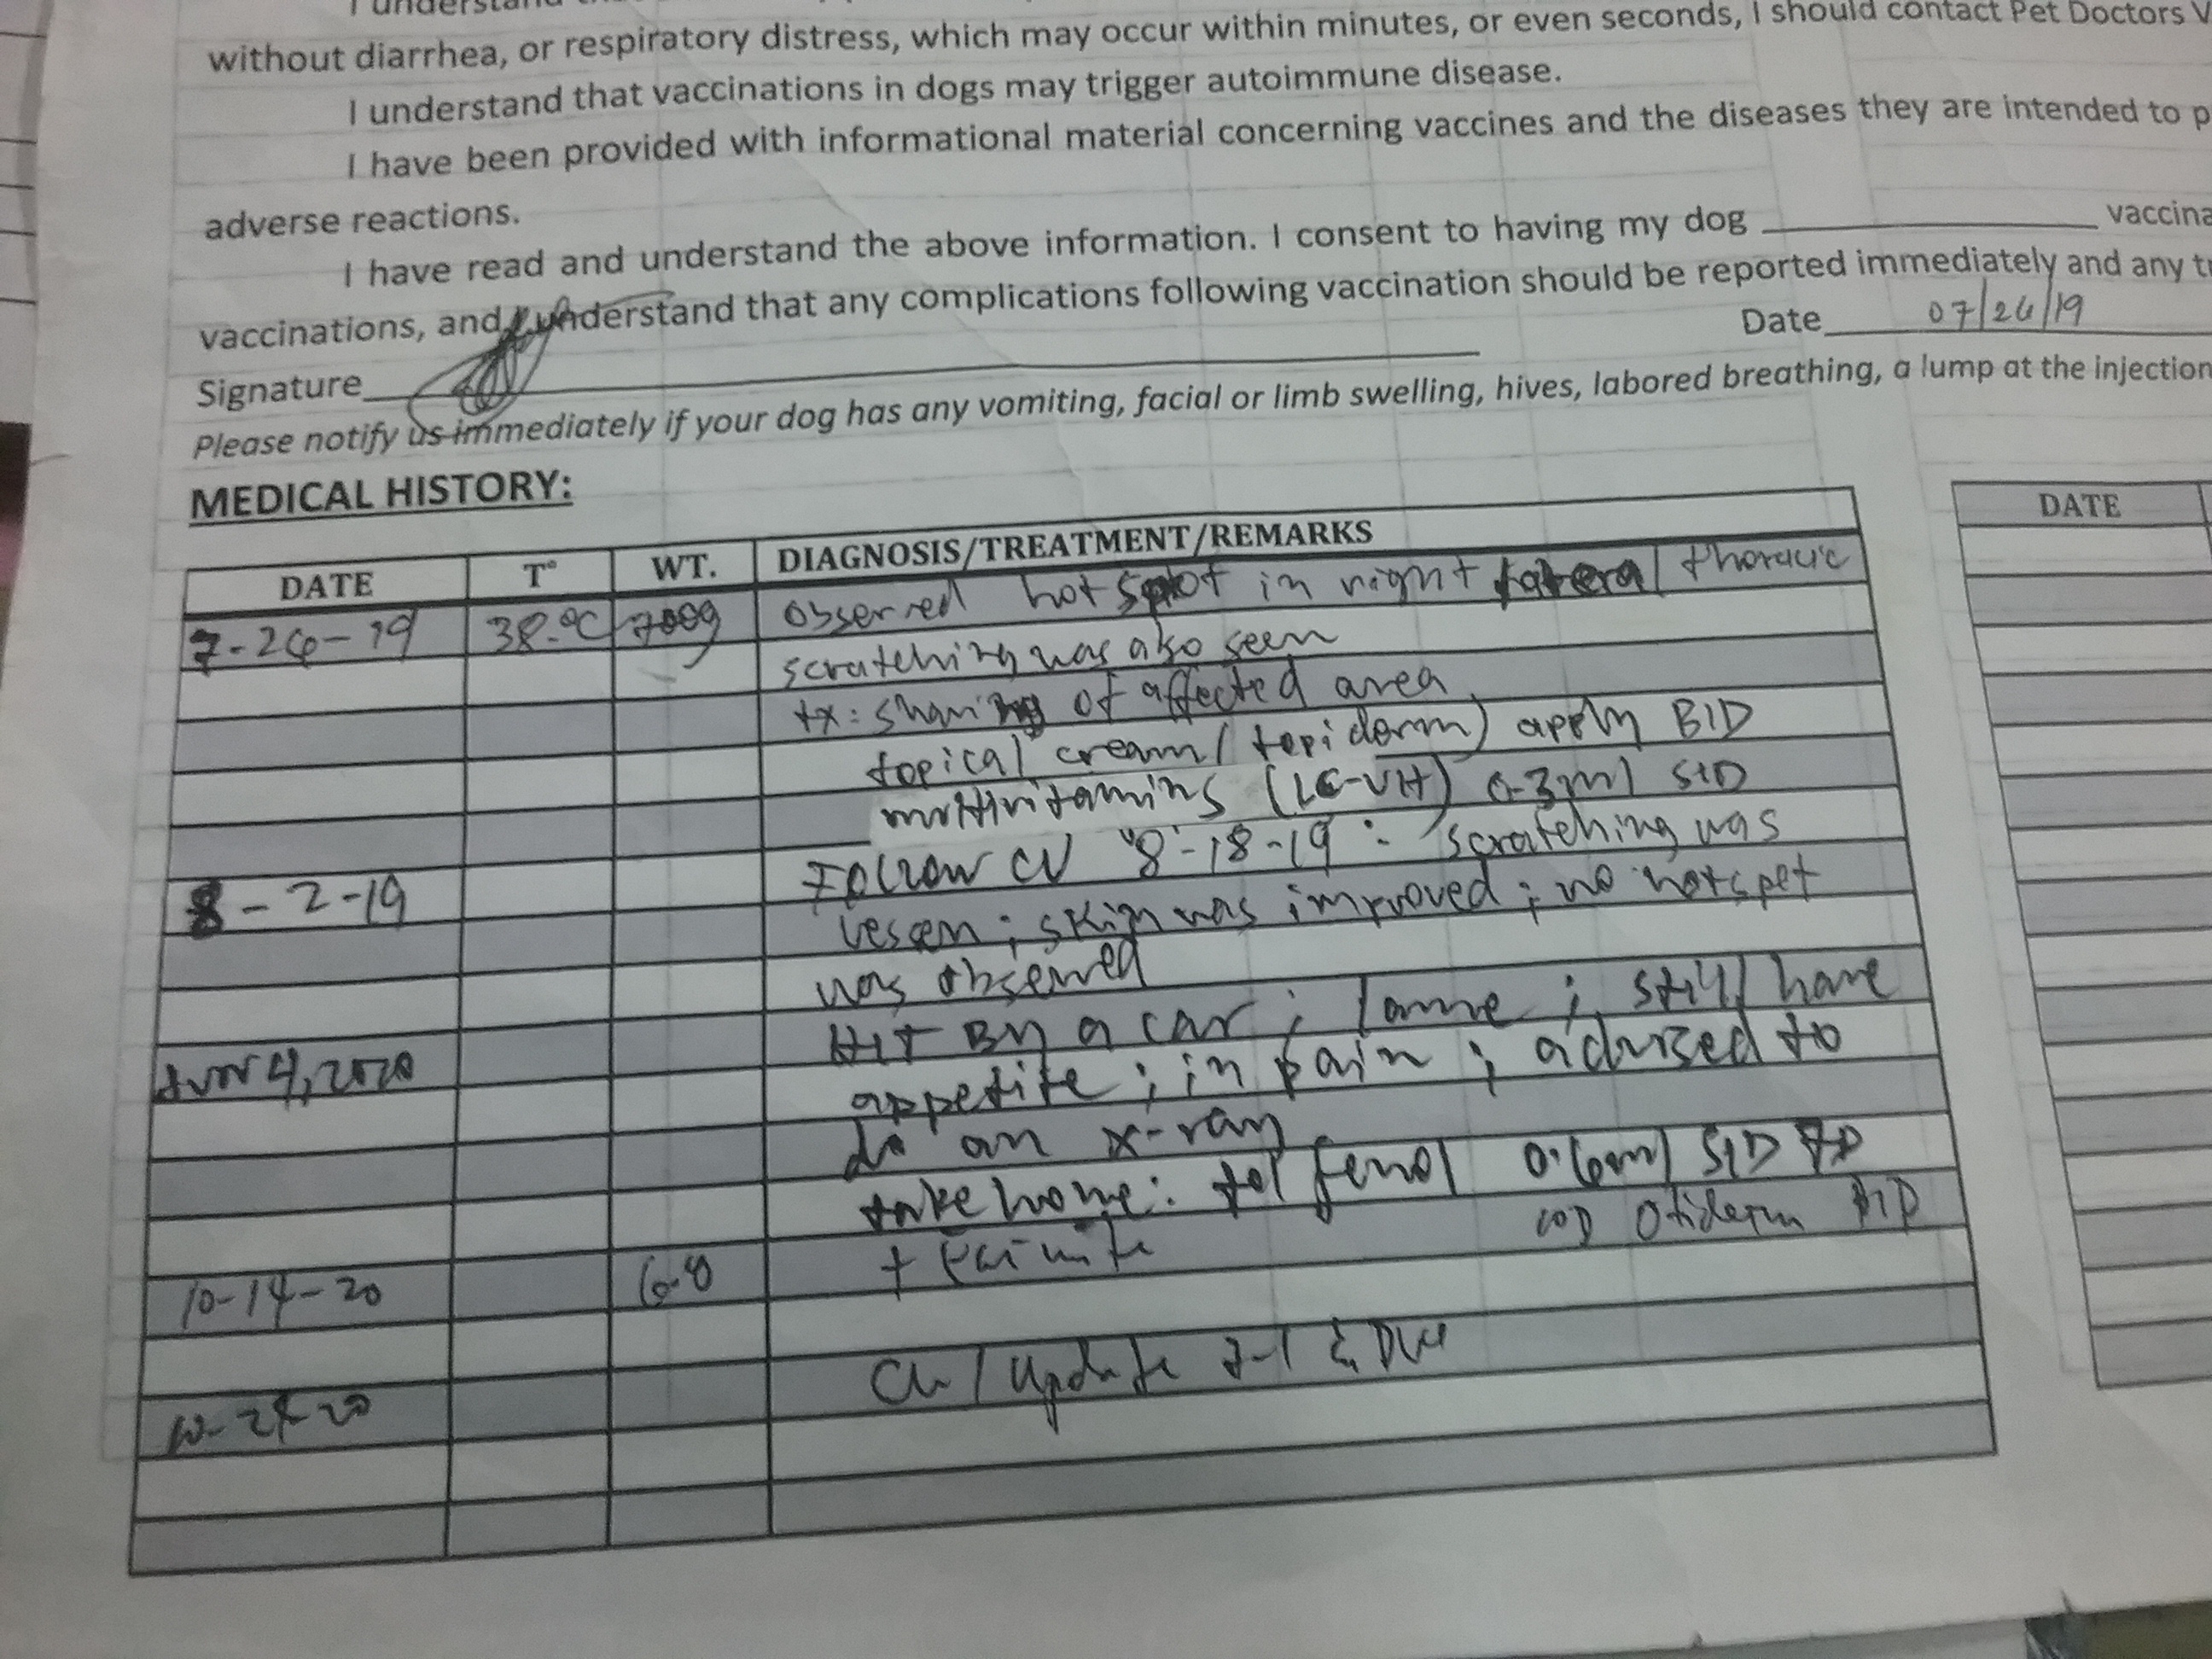 I understand
without diarrhea, or respiratory distress, which may occur within minutes, or even seconds, I should contact Pet Doctors V
I understand that vaccinations in dogs may trigger autoimmune disease.
I have been provided with informational material concerning vaccines and the diseases they are intended to p
adverse reactions.
I have read and understand the above information. I consent to having my dog ____________ vaccina
vaccinations, and I understand that any complications following vaccination should be reported immediately and any tr
Signature Date 07/26/19
Please notify us immediately if your dog has any vomiting, facial or limb swelling, hives, labored breathing, a lump at the injection
MEDICAL HISTORY:
DATE T° WT. DIAGNOSIS/TREATMENT/REMARKS DATE
7-26-19 38.°C 700g observed hot spot in right lateral thoracic
scratching was also seen
tx: shaving of affected area
topical cream (topiderm) apply BID
multivitamins (LC-VH) 0.3ml SID
8-2-19 Follow "8-18-19: scratching was
lessen; skin was improved; no hotspot
was observed
4, 2020 Hit By a car; lame; still have
appetite; in pain; advised to
do an x-ray
take home: tolfenol 0.6ml SID 7D
10-14-20 6.8 + Otiderm BID
10-24-20 / update &